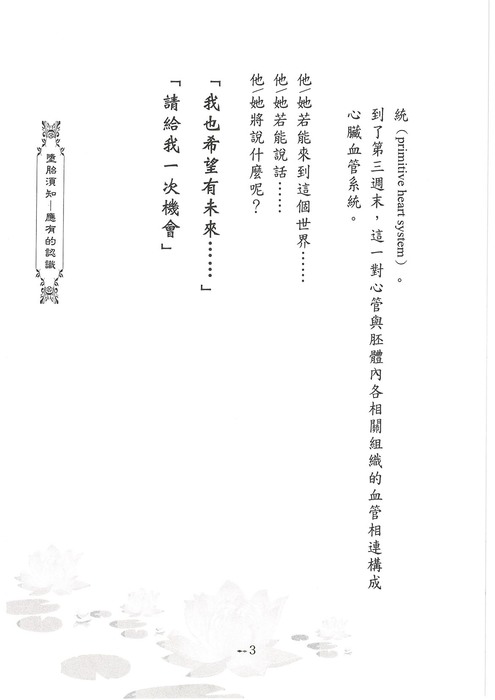 統（primitive heart system）。
到了第三週末，這一對心管與胚體內各相關組織的血管相連構成
心臟血管系統。
他\她若能來到這個世界……
他\她若能說話……
他\她將說什麼呢？
「我也希望有未來……」
「請給我一次機會」
墮胎須知—應有的認識
3